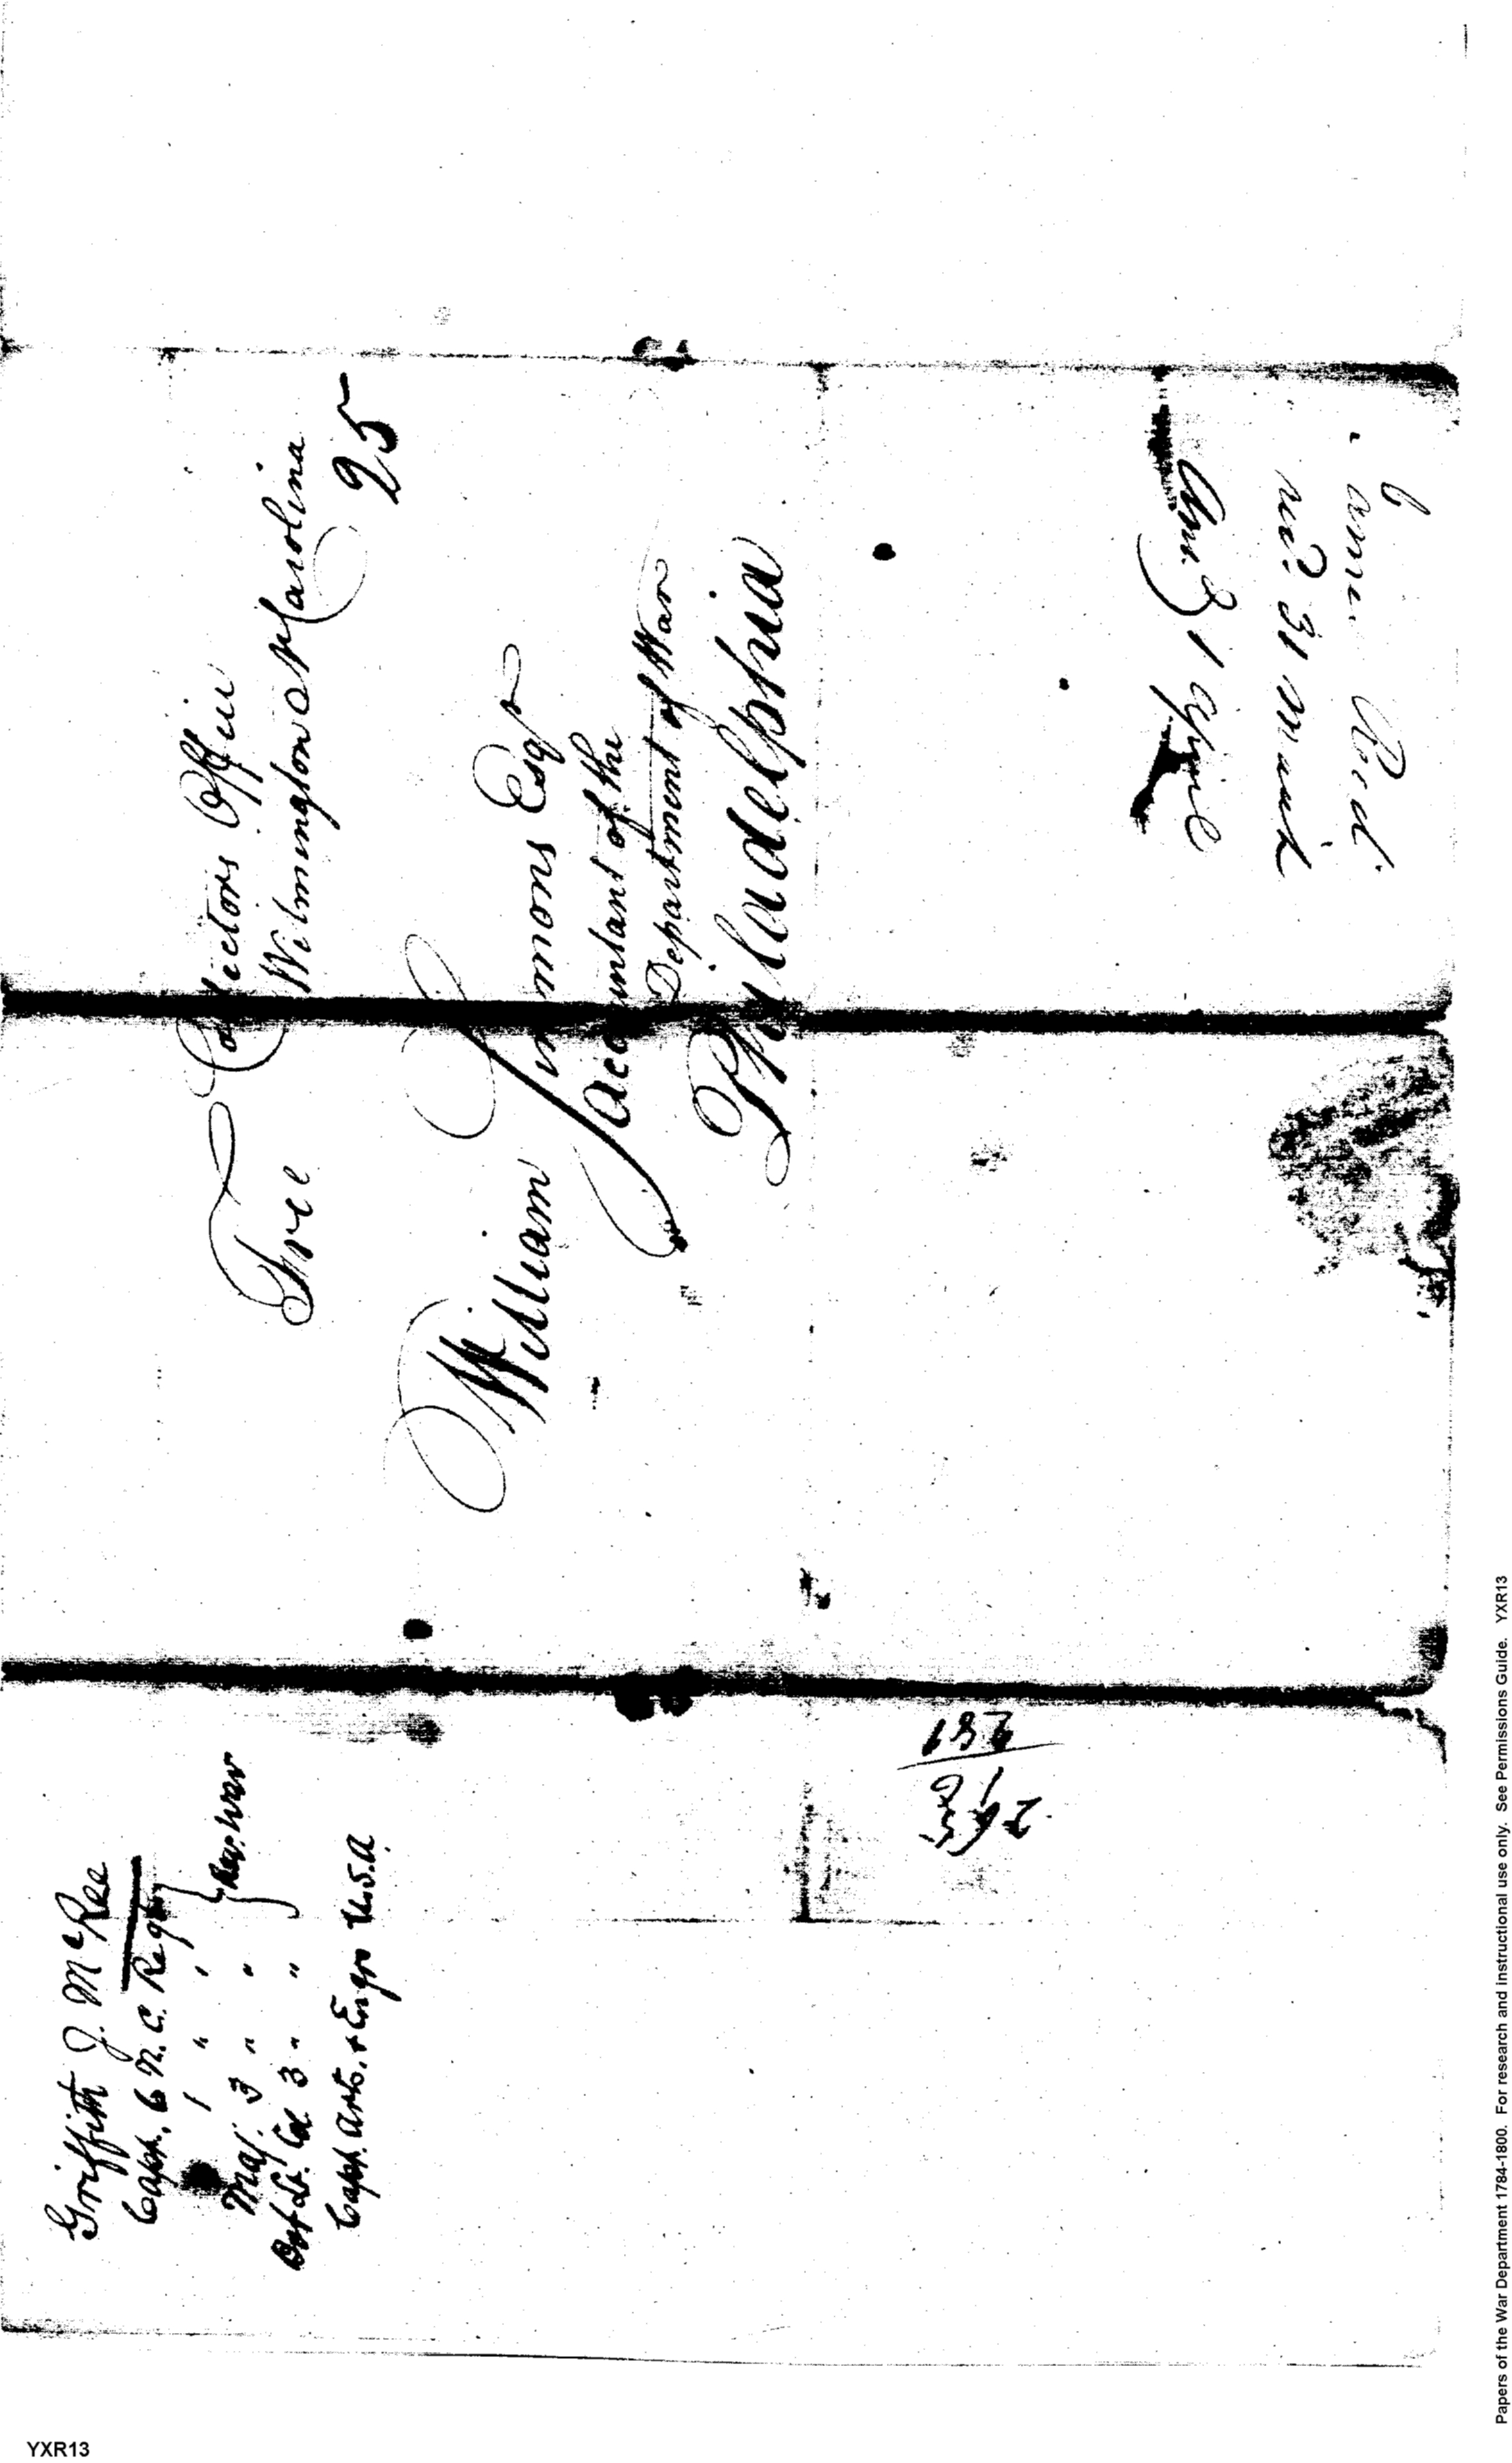 Free
Collectors Office
Wilmington N Carolina
25
William Simmons Esqr
Accountant of the
Department of War
Philadelphia
recd. 31 March
1 April
Griffith J. McRee
Capt. 6 N.C. Regt
1 " "
Maj. 3 " "
Bvt Lt. Col 3 " "
} Rev. War
Capt. Arts. & Engrs U.S.A.
Papers of the War Department 1784-1800. For research and instructional use only. See Permissions Guide. YXR13
YXR13